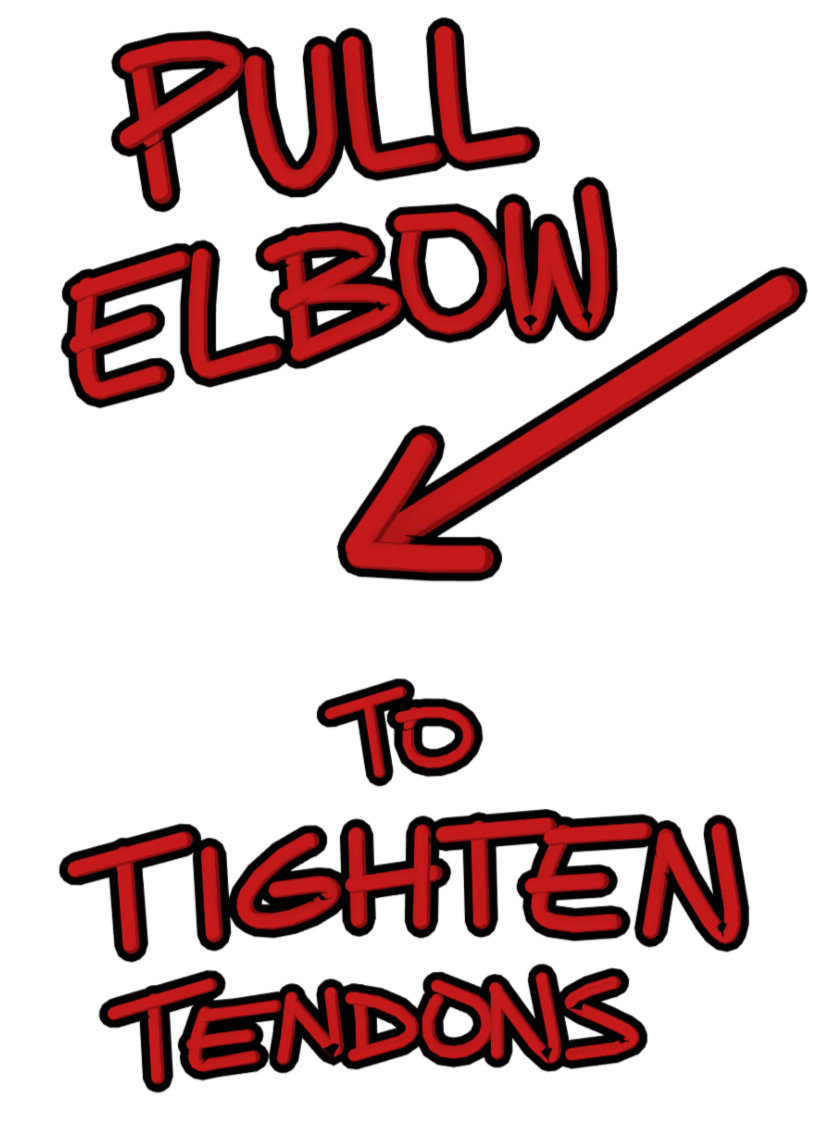 PULL
ELBOW
TO
TIGHTEN
TENDONS